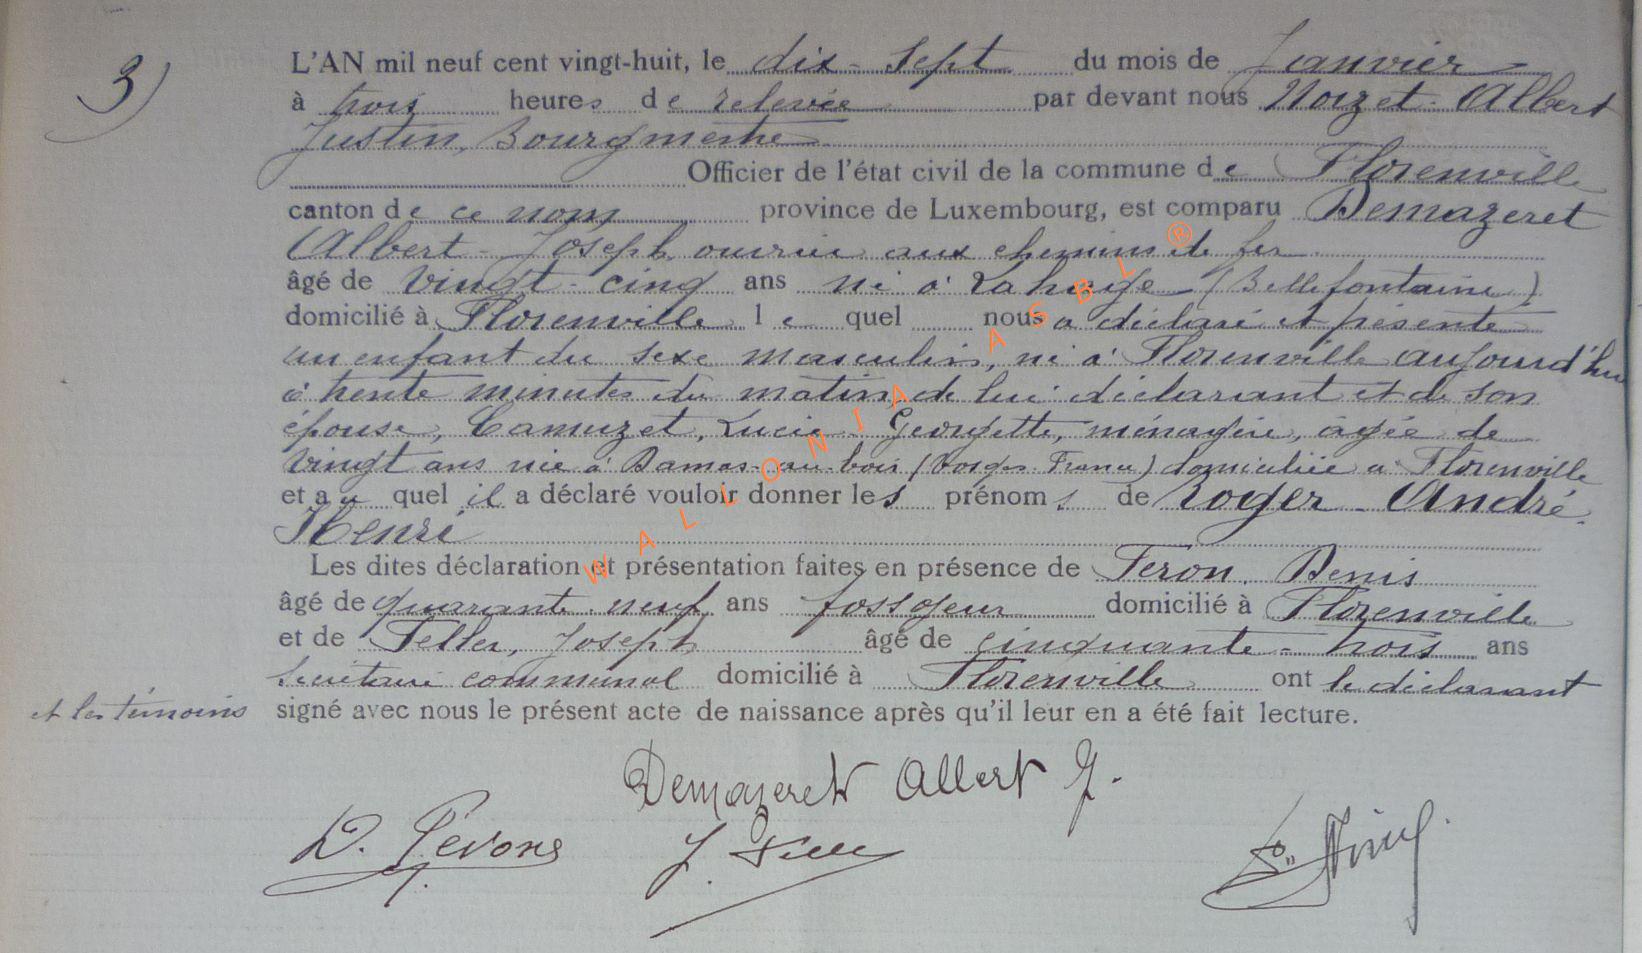 3)
L'AN mil neuf cent vingt-huit, le dix-sept du mois de Janvier
à trois heures de relevée par devant nous Nozet Albert
Justin, Bourgmestre
Officier de l'état civil de la commune de Florenville
canton de ce nom province de Luxembourg, est comparu Demazeret
Albert Joseph ouvrier aux chemins de fer
âgé de vingt-cinq ans né à Lahage (Bellefontaine)
domicilié à Florenville lequel nous a déclaré et présenté
un enfant du sexe masculin, né à Florenville aujourd'hui
à trente minutes du matin de lui déclarant et de son
épouse, Camuzet, Lucie Georgette, ménagère, âgée de
vingt ans née à Damas-au-bois (Vosges France) domiciliée à Florenville
et auquel il a déclaré vouloir donner les prénoms de Roger-André
Henri
Les dites déclaration et présentation faites en présence de Feron, Denis
âgé de quarante-neuf ans fossoyeur domicilié à Florenville
et de Feller, Joseph âgé de cinquante-trois ans
Secrétaire communal domicilié à Florenville ont le déclarant
et les témoins signé avec nous le présent acte de naissance après qu'il leur en a été fait lecture.
Demazeret Albert J.
D.
J.
WALLONIA ASBL ®